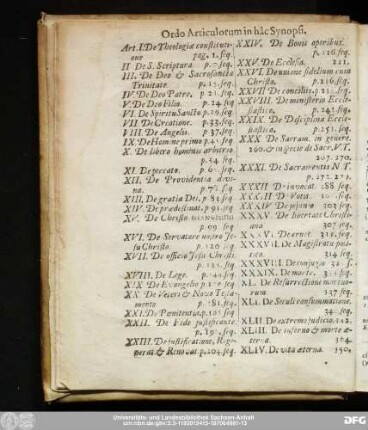 Ordo Articulorum in hâc Synopsi.
Art. I. De Theologiæ constitutione pag. 1. seq.
II De S. Scriptura p. 7. seq.
III. De Deo & Sacrosancta
Trinitate p. 15. seq.
IV. De Deo Patre. p. 21. seq.
V. De Deo Filio. p. 24 seq
VI. De Spiritu Sancto p. 29. seq.
VII De Creatione. p. 33. seq.
VIII. De Angelis. p. 37. seq.
IX. De Homine primo p. 45 seq.
X. De libero hominis arbitrio.
p. 54. seq.
XI. De peccato. seq.
XII. De Providentia divina.
p. 72. seq.
XIII. De gratia Dei. p. 82 seq.
XIV. De prædestinat. p. 91. seq.
XV. De Christo
p. 109. seq.
XVI. De Servatore nostro Jesu Christo. p. 120 seq.
XVII. De officio Jesu Christi
seq.
XVIII. De Lege. seq.
XIX De Evangelio seq.
XX De Veteri & Novo Testamento
seq.
XXI. De Pœnitentia. seq.
XXII. De Fide justificante.
seq.
XXIII. De justificatione, Regenerat & Renovat. p. 204. seq.
XXIV. De Bonis operibus.
p. 216 seq.
XXV. De Ecclesia. 221.
XXVI. De unione fidelium cum
Christo. p. 226. seq.
XXVII De conciliis. seq.
XXVIII. De ministerio Ecclesiastico. seq.
XXIX. De Disciplina Ecclesiastica. p. 251. seq.
XXX De Sacram. in genere.
260. & in specie de Sacr. V. T.
267. 270.
XXXI. De Sacramentis N. T.
XXXII De invocat. 288. seq.
XXXIII De Votis. seq.
XXXIV De jejunio 303 seq.
XXXV. De libertate Christiana 307 seq.
XXXVI. De seq.
XXXVII. De Magistratu politico 314 seq.
XXXVIII. De conjugio seq.
XXXIX. De morte. seq.
XL. De Resurrectione mortuorum. 337 seq.
XLI. De Seculi consummatione.
seq.
XLII. De extremo judicio. 342.
XLIII. De inferno & morte æterna.
XLIV. De vita æterna. 350.
Universitäts- und Landesbibliothek Sachsen-Anhalt